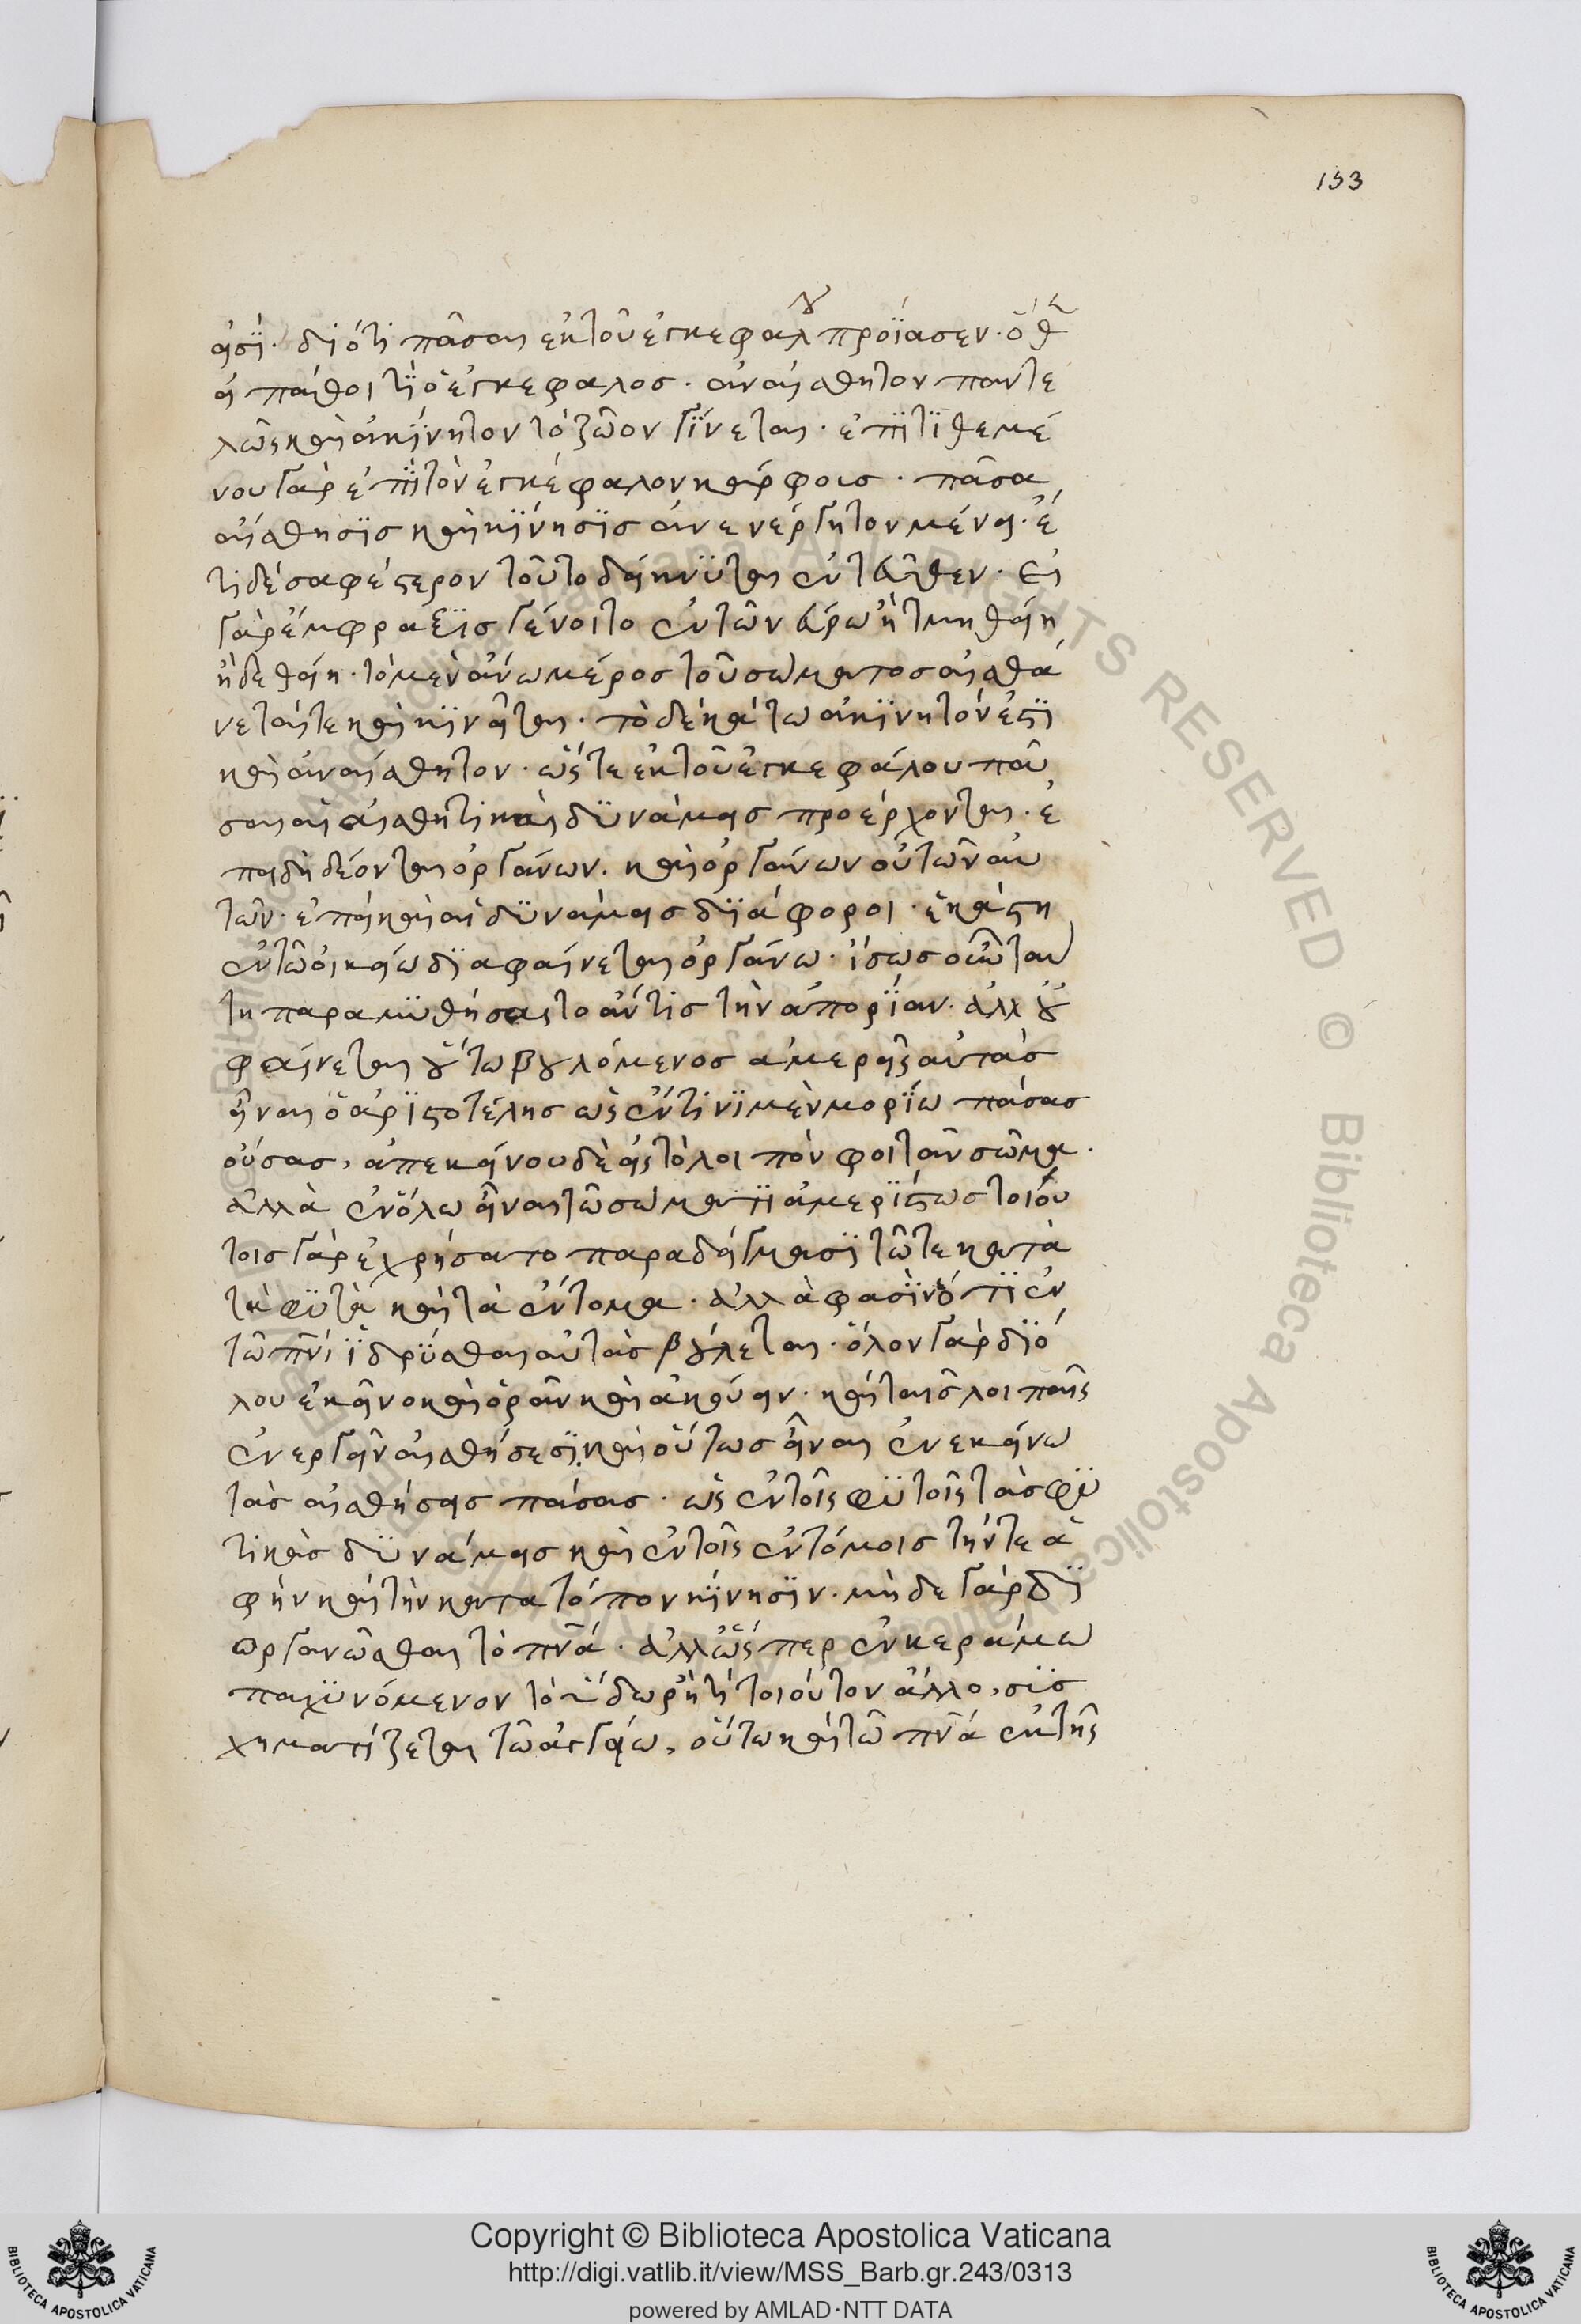 153
εἰσῒ· διότι πᾶσαι ἐκ τοῦ ἐγκεφαλου προΐασϊν· ὅθεν
εἰ πάθοι τῒ ὁ ἐγκέφαλοσ· ἀναίσθητον παντε
λῶς καὶ ἀκίνητον τὸ ζῶον γΐνεται· ἐπῒτϊθεμέ
νου γὰρ ἐπῒ τὸν ἐγκέφαλον κάρφοισ· πᾶσα
αἴσθησϊσ καὶ κΐνησϊσ ἀνενέργητον μένει· ἔ
τι δὲ σαφέστερον τοῦτο δείκνϋται ἐντεῦθεν· εἰ
γὰρ ἔμφραξϊσ γένοιτο ἐν τῶ νεύρω ἢ τμηθείη
ἢ δεθείη· τὸ μὲν ἄνω μέροσ τοῦ σώματοσ αἰσθά
νεταί τε καὶ κϊνεῖται· τὸ δὲ κάτω ἀκΐνητόν ἐστῒ
καὶ ἀναίσθητον· ὥστε ἐκ τοῦ ἐγκεφάλου πᾶ
σαι αἱ αἰσθητικαὶ δϋνάμεισ προέρχονται· ἐ
πειδὴ δέονται ὀργάνων· καὶ ὀργάνων οὐ τῶν αὐ
τῶν· ἐπεὶ καὶ αἱ δϋνάμεισ δϊάφοροι· ἑκάστη
ἐν τῶ οἰκείω δϊαφαίνεται ὀργάνω· ἴσωσ οὖν ταύ
τη παραμϋθήσαιτο ἄν τισ τὴν ἀπορΐαν· ἀλλ' οὐ
φαίνεται οὕτω βουλόμενοσ ἀμερεῖς αὐτάσ
εἶναι ὁ ἀρϊστοτέλησ ὡς ἔν τινϊ μὲν μορΐω πάσασ
οὔσασ, ἀπ' ἐκείνου δὲ εἰς τὸ λοιπὸν φοιτᾶν σῶμα·
ἀλλὰ ἐν ὅλω εἶναι τῶ σώματϊ ἀμερΐστωσ τοιού
τοισ γὰρ ἐχρήσατο παραδείγμασϊ τῶ τε κατὰ
τὰ φϋτὰ καὶ τὰ ἔντομα· ἀλλὰ φασῒν ὅτϊ ἐν
τῶ πνι ἱδρῦσθαι αὐτὰσ βούλεται· ὅλον γὰρ δϊό
λου ἐκεῖνο καὶ ὁρᾶν καὶ ἀκούειν· καὶ ταῖσ λοιπαῖς
ἐνεργεῖν αἰσθήσεσϊ, καὶ οὕτωσ εἶναι ἐν ἐκείνω
τὰσ αἰσθήσεισ πάσασ· ὡς ἐν τοῖς φϋτοῖς τὰσ φϋ
τικὰσ δϋνάμεισ καὶ ἐν τοῖς ἐντόμοισ τήν τε ἁ
φὴν καὶ τὴν κατα τόπον κΐνησϊν· μὴδε γὰρ δϊ
οργανῶσθαι τὸ πνα· ἀλλ' ὥσπερ ἐν κεράμω
παχϋνόμενον τὸ ὕδωρ ἤ τι τοιοῦτον ἄλλο, σϋσ
χηματίζεται τῶ ἀγγείω, οὕτω καὶ τῶ πνα ἐκ τῆς
Copyright © Biblioteca Apostolica Vaticana
http://digi.vatlib.it/view/MSS_Barb.gr.243/0313
powered by AMLAD·NTT DATA